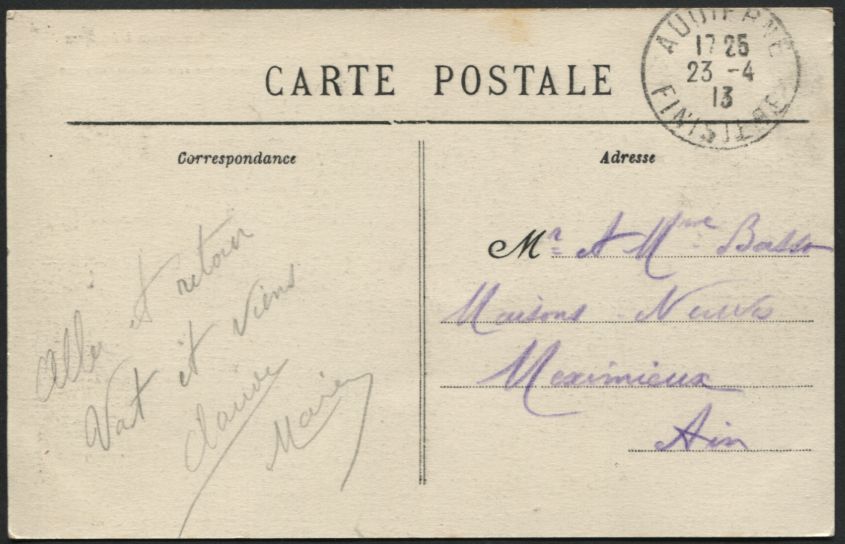 CARTE POSTALE
AUDIERNE
17 25
23 -4
13
FINISTERE
Correspondance
Adresse
Aller et retour
Vat et viens
Mr et Mme
Maisons - Neuves
Meximieux
Ain